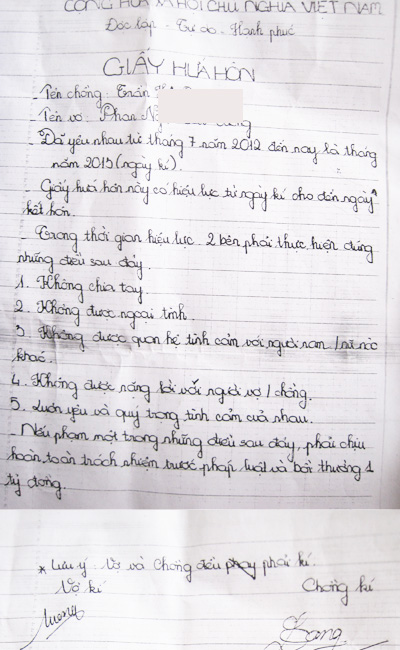 CỘNG HÒA XÃ HỘI CHỦ NGHĨA VIỆT NAM
Độc lập - Tự do - Hạnh phúc
GIẤY HỨA HÔN
- Tên chồng: Trần
- Tên vợ: Phan
- Đã yêu nhau từ tháng 7 năm 2012 đến nay là tháng
năm 2015 (ngày kí).
- Giấy hứa hôn này có hiệu lực từ ngày kí cho đến ngày
kết hôn.
- Trong thời gian hiệu lực 2 bên phải thực hiện đúng
những điều sau đây.
1. Không chia tay.
2. Không được ngoại tình.
3. Không được quan hệ tình cảm với người nam / nữ nào
khác.
4. Không được nặng lời với người vợ / chồng.
5. Luôn yêu và quý trọng tình cảm của nhau.
- Nếu phạm một trong những điều sau đây, phải chịu
hoàn toàn trách nhiệm trước pháp luật và bồi thường 1
tỷ đồng.
* Lưu ý: Vợ và Chồng đều phải kí.
Vợ kí Chồng kí